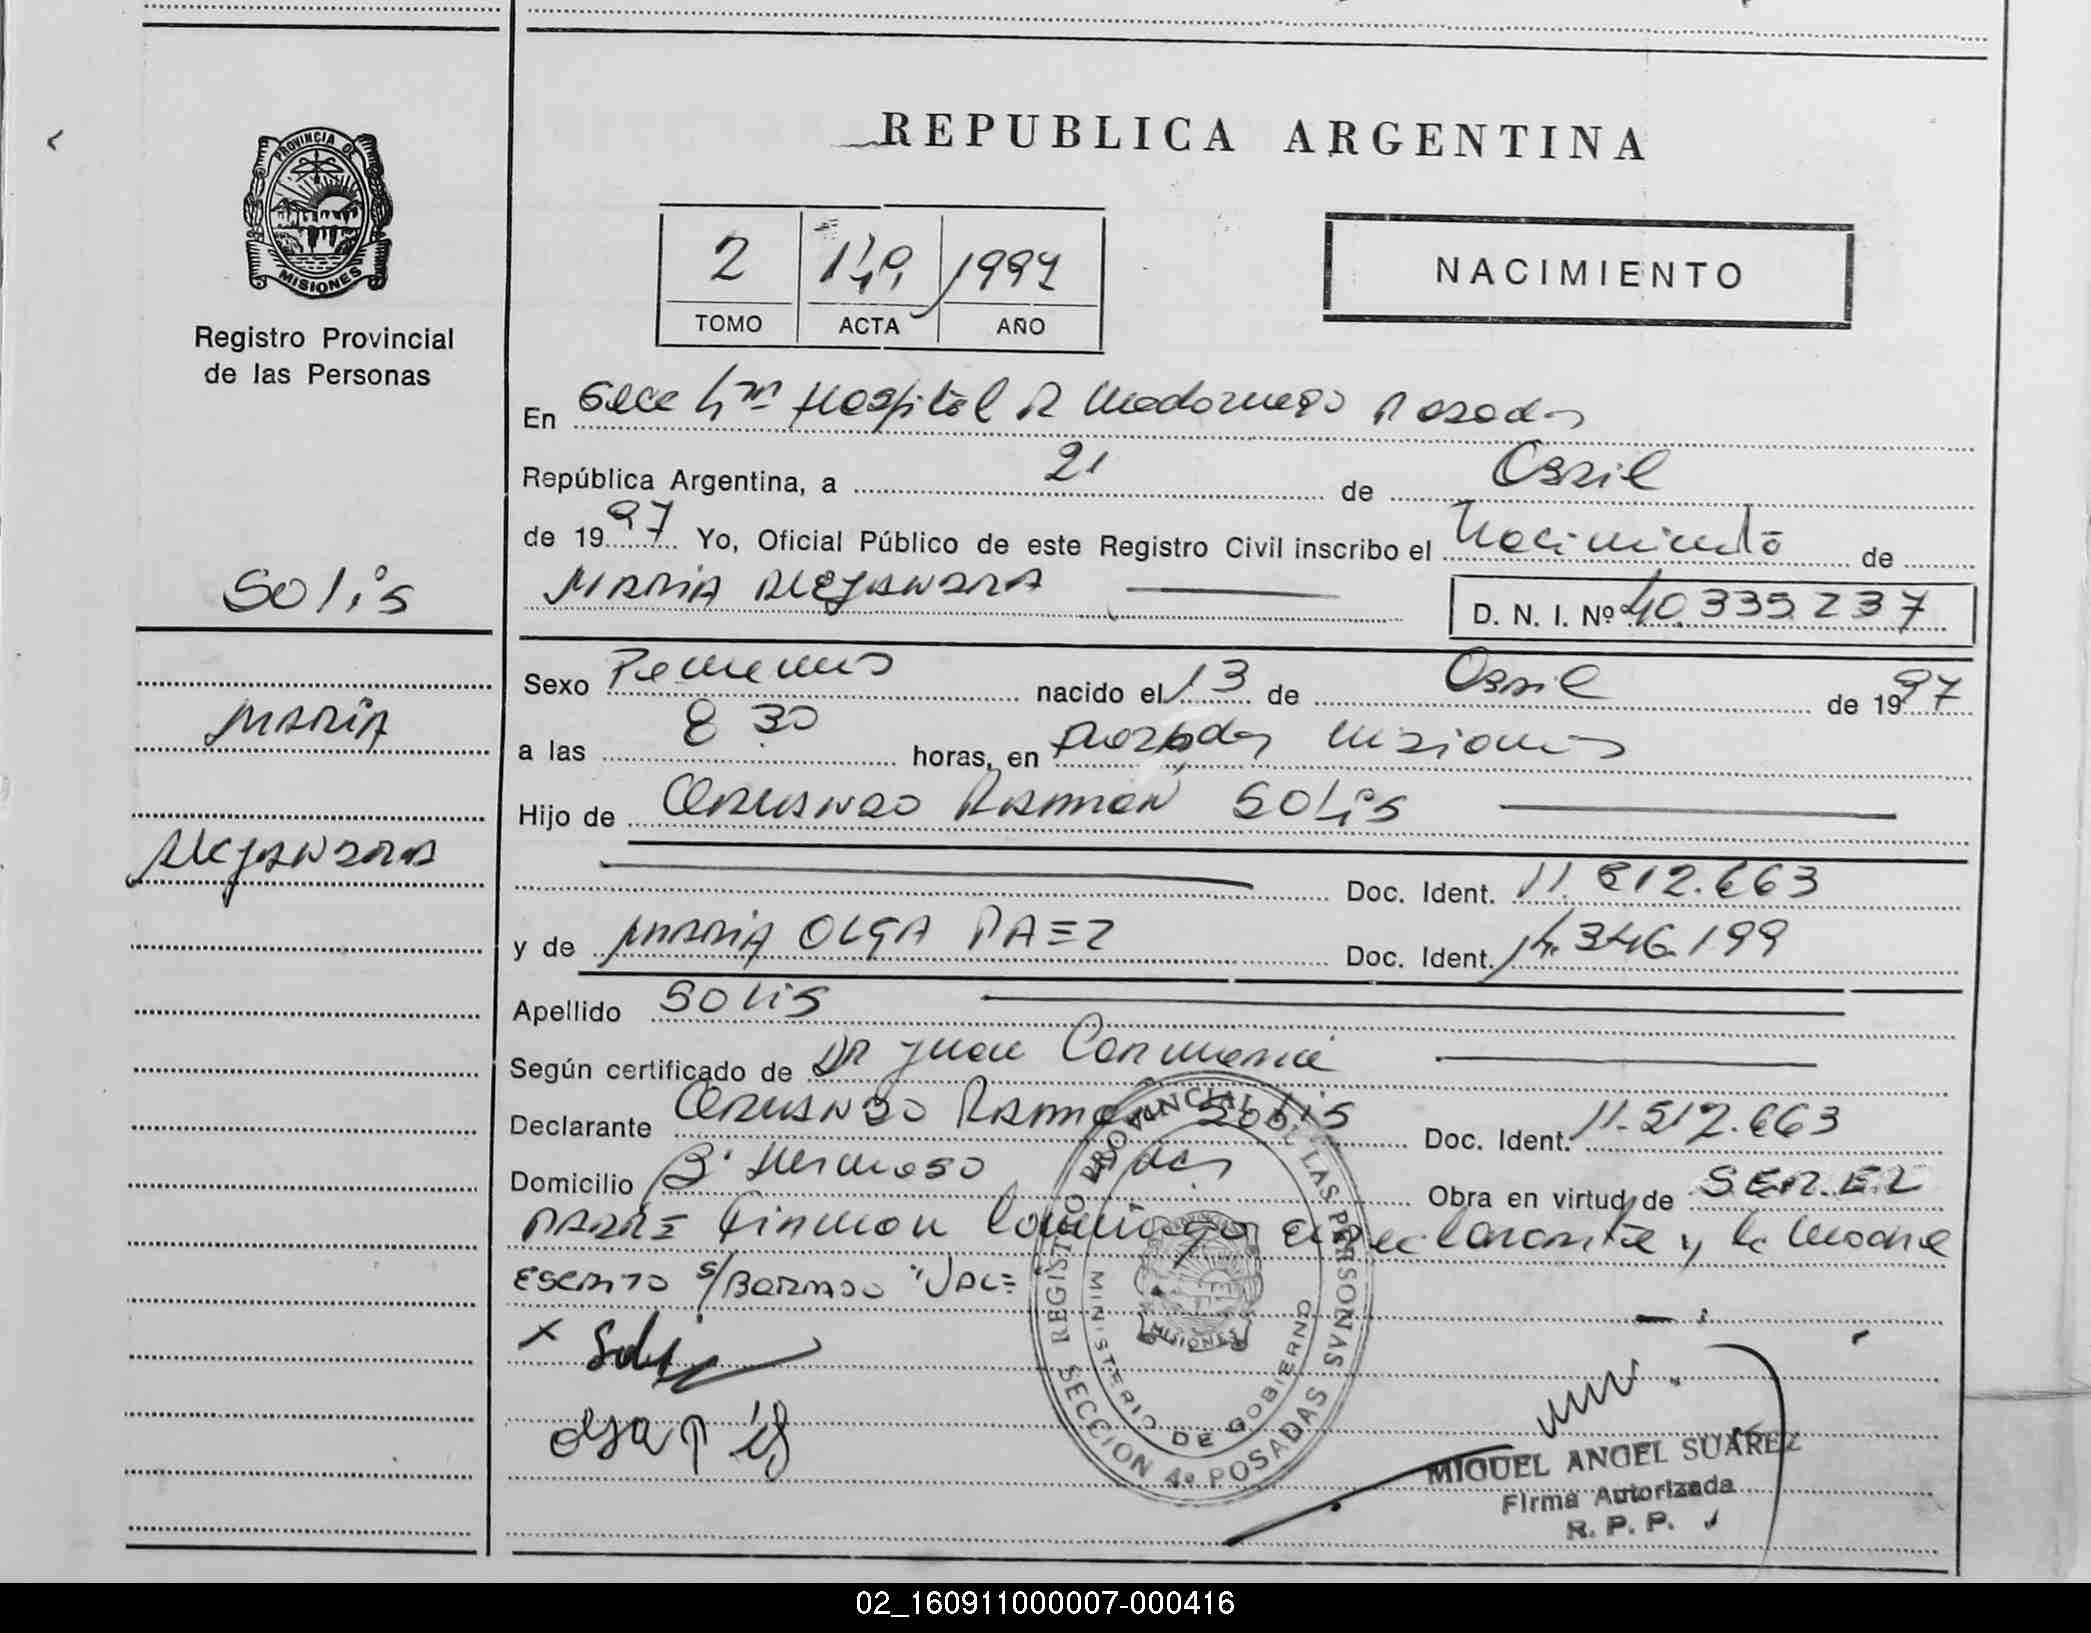 REPUBLICA ARGENTINA
PROVINCIA DE
MISIONES
Registro Provincial
de las Personas
2 1997
TOMO ACTA AÑO
NACIMIENTO
En Hospital R Madariaga Posadas
República Argentina, a 21 de Abril
de 1997 Yo, Oficial Público de este Registro Civil inscribo el Nacimiento de
SOLIS
MARIA ALEJANDRA
D. N. I. Nº 40.335.237
MARIA
ALEJANDRA
Sexo Femenino nacido el 13 de Abril de 1997
a las 8 30 horas, en Posadas Misiones
Hijo de ARMANDO RAMON SOLIS
Doc. Ident. 11.812.663
y de MARIA OLGA PAEZ Doc. Ident. 14.346.199
Apellido SOLIS
Según certificado de DR Juan
Declarante ARMANDO RAMON SOLIS Doc. Ident. 11.812.663
Domicilio Bº Hermoso Obra en virtud de SER EL
PADRE Firman conmigo el declarante y la Madre
ESCRITO S/BORRADO "VALE
x Solis
Olga P
REGISTRO PROVINCIAL DE LAS PERSONAS
MINISTERIO DE GOBIERNO
MISIONES
SECCION 4º POSADAS
MIGUEL ANGEL SUAREZ
Firma Autorizada
R. P. P.
02_160911000007-000416